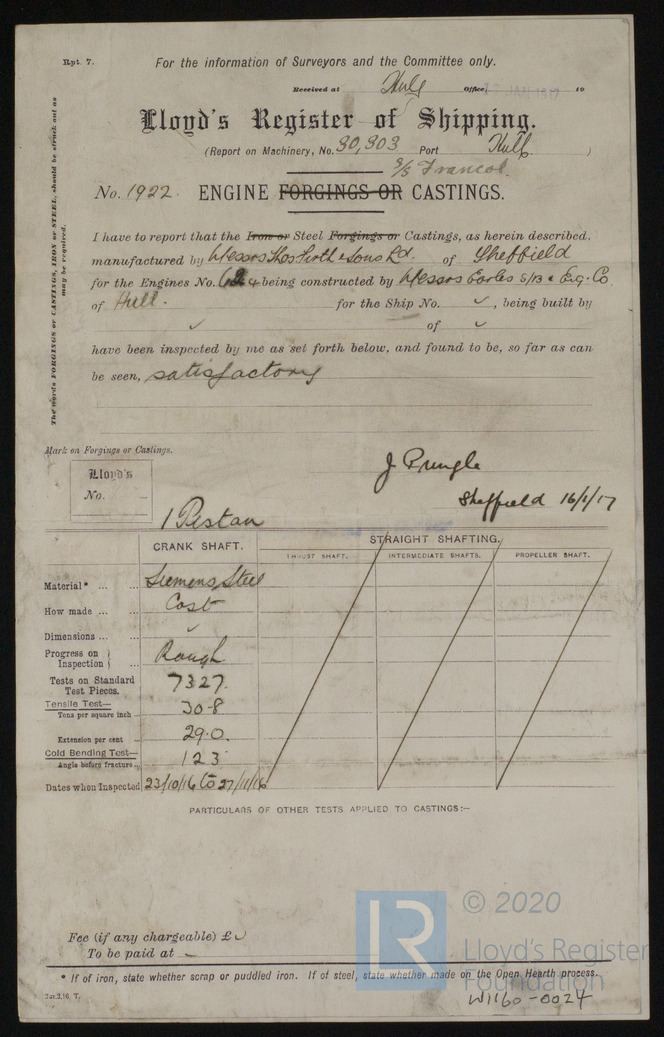 Rpt. 7.
For the information of Surveyors and the Committee only.
Received at Hull Office JAN 1917 19
Lloyd's Register of Shipping.
(Report on Machinery, No. 30,303 Port Hull )
S/S Francol.
No. 1922. ENGINE FORGINGS OR CASTINGS.
I have to report that the Iron or Steel Forgings or Castings, as herein described,
manufactured by Messrs Thos Firth & Sons Ld. of Sheffield
for the Engines No. 624 being constructed by Messrs Earles S/B & Eng. Co.
of Hull. for the Ship No. ✓, being built by
✓ of ✓
have been inspected by me as set forth below, and found to be, so far as can
be seen, satisfactory
The words FORGINGS or CASTINGS, IRON or STEEL, should be struck out as
may be required.
Mark on Forgings or Castings.
Lloyd's
No.
J Pringle
Sheffield 16/1/17
1 Piston
CRANK SHAFT. STRAIGHT SHAFTING.
THRUST SHAFT. INTERMEDIATE SHAFTS. PROPELLER SHAFT.
Material* ... ... Siemens Steel
How made ... ... Cast
Dimensions ... ... ✓
Progress on
Inspection } ... Rough
Tests on Standard
Test Pieces. 7327.
Tensile Test—
Tons per square inch 30.8
Extension per cent 29.0.
Cold Bending Test—
Angle before fracture 123
Dates when Inspected 23/10/16 to 27/11/16
PARTICULARS OF OTHER TESTS APPLIED TO CASTINGS:—
Fee (if any chargeable) £
To be paid at
* If of iron, state whether scrap or puddled iron. If of steel, state whether made on the Open Hearth process.
LR © 2020
Lloyd's Register
Foundation
W1160-0024